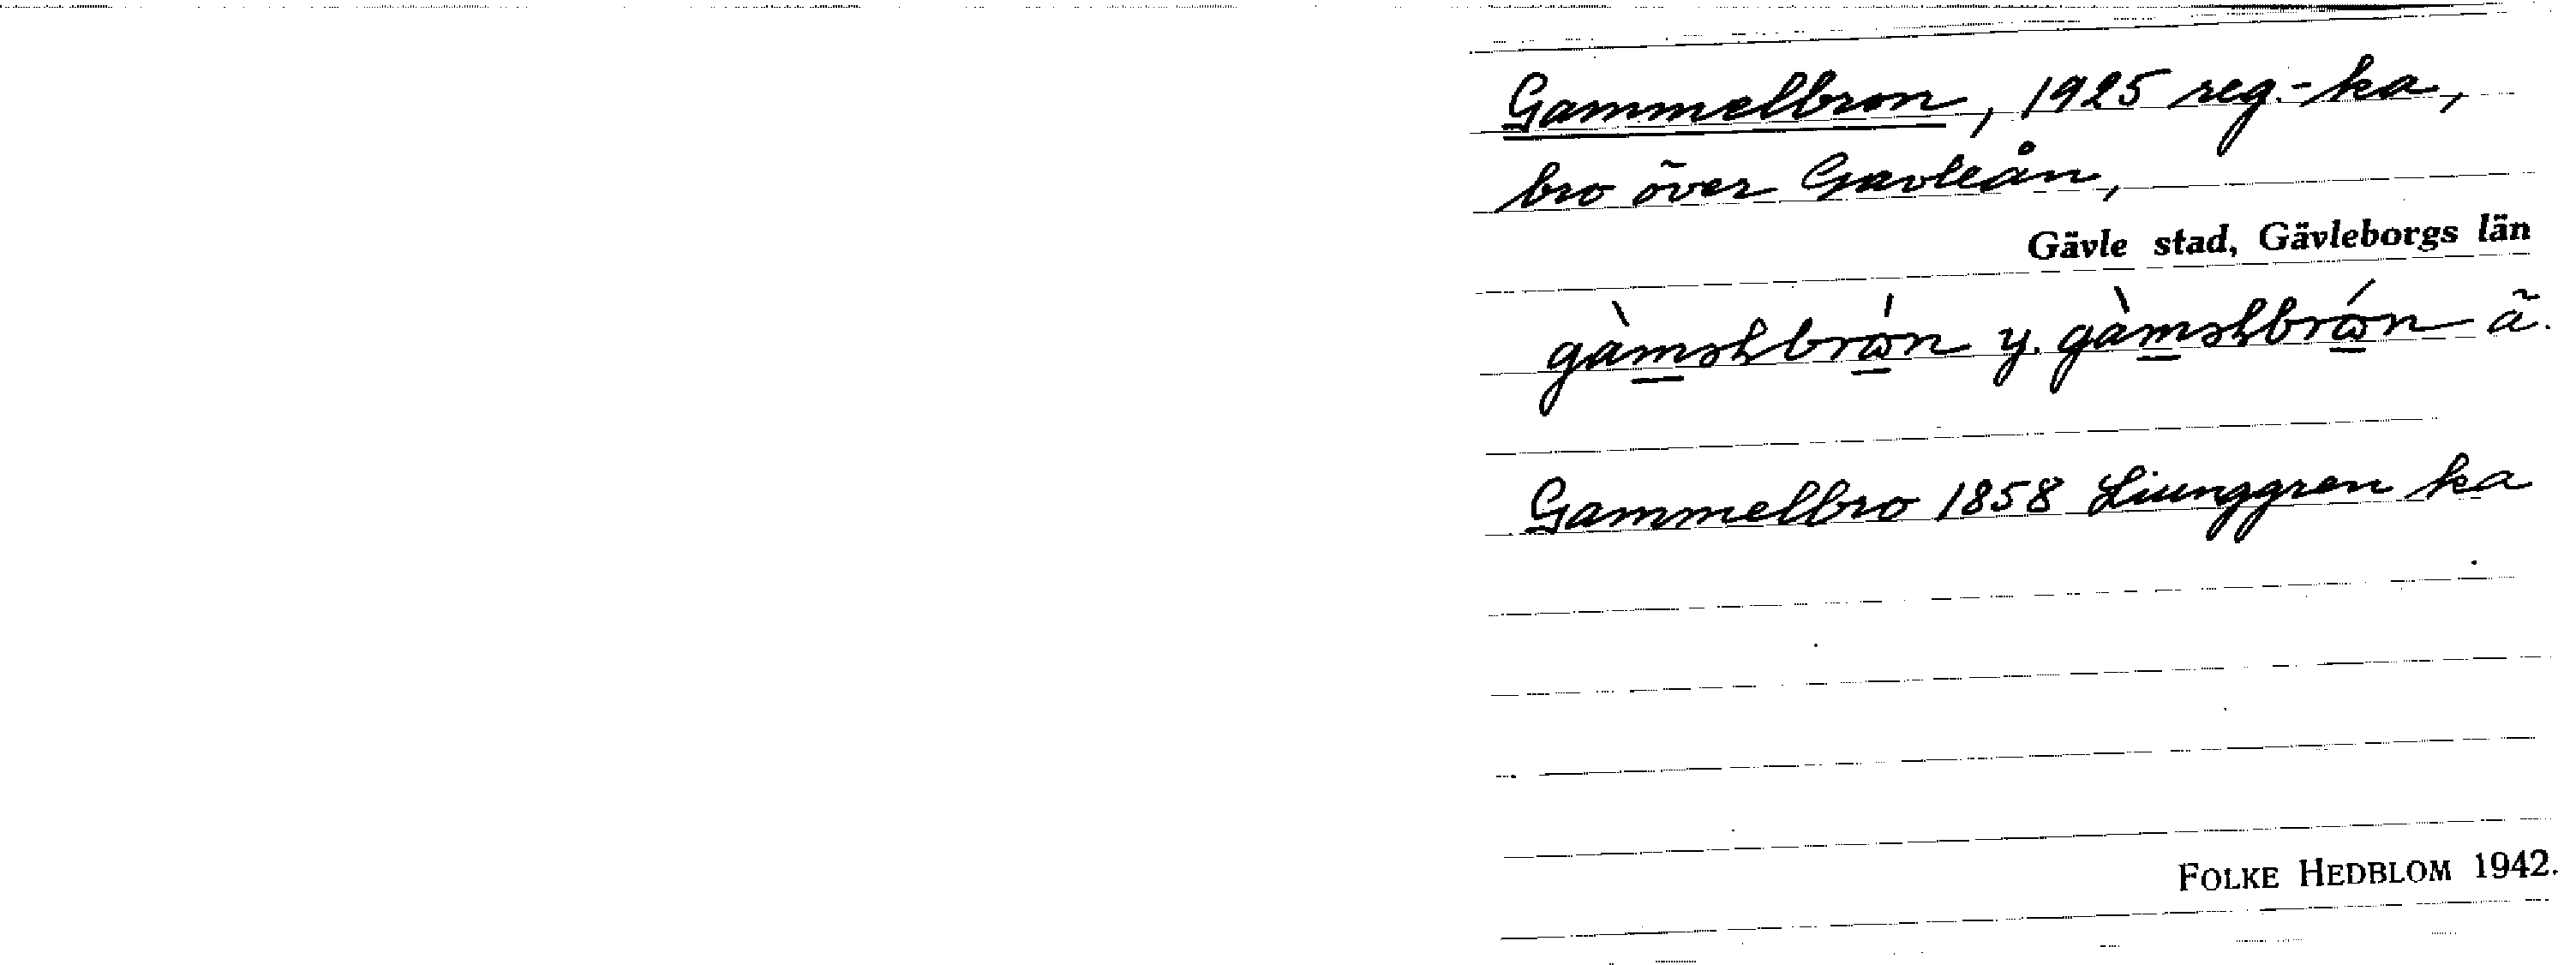 Gammelbron, 1925 reg.-ka,
bro över Gavleån,
Gävle stad, Gävleborgs län
y. ä.
Gammelbro 1858 Liunggren ka
FOLKE HEDBLOM 1942.